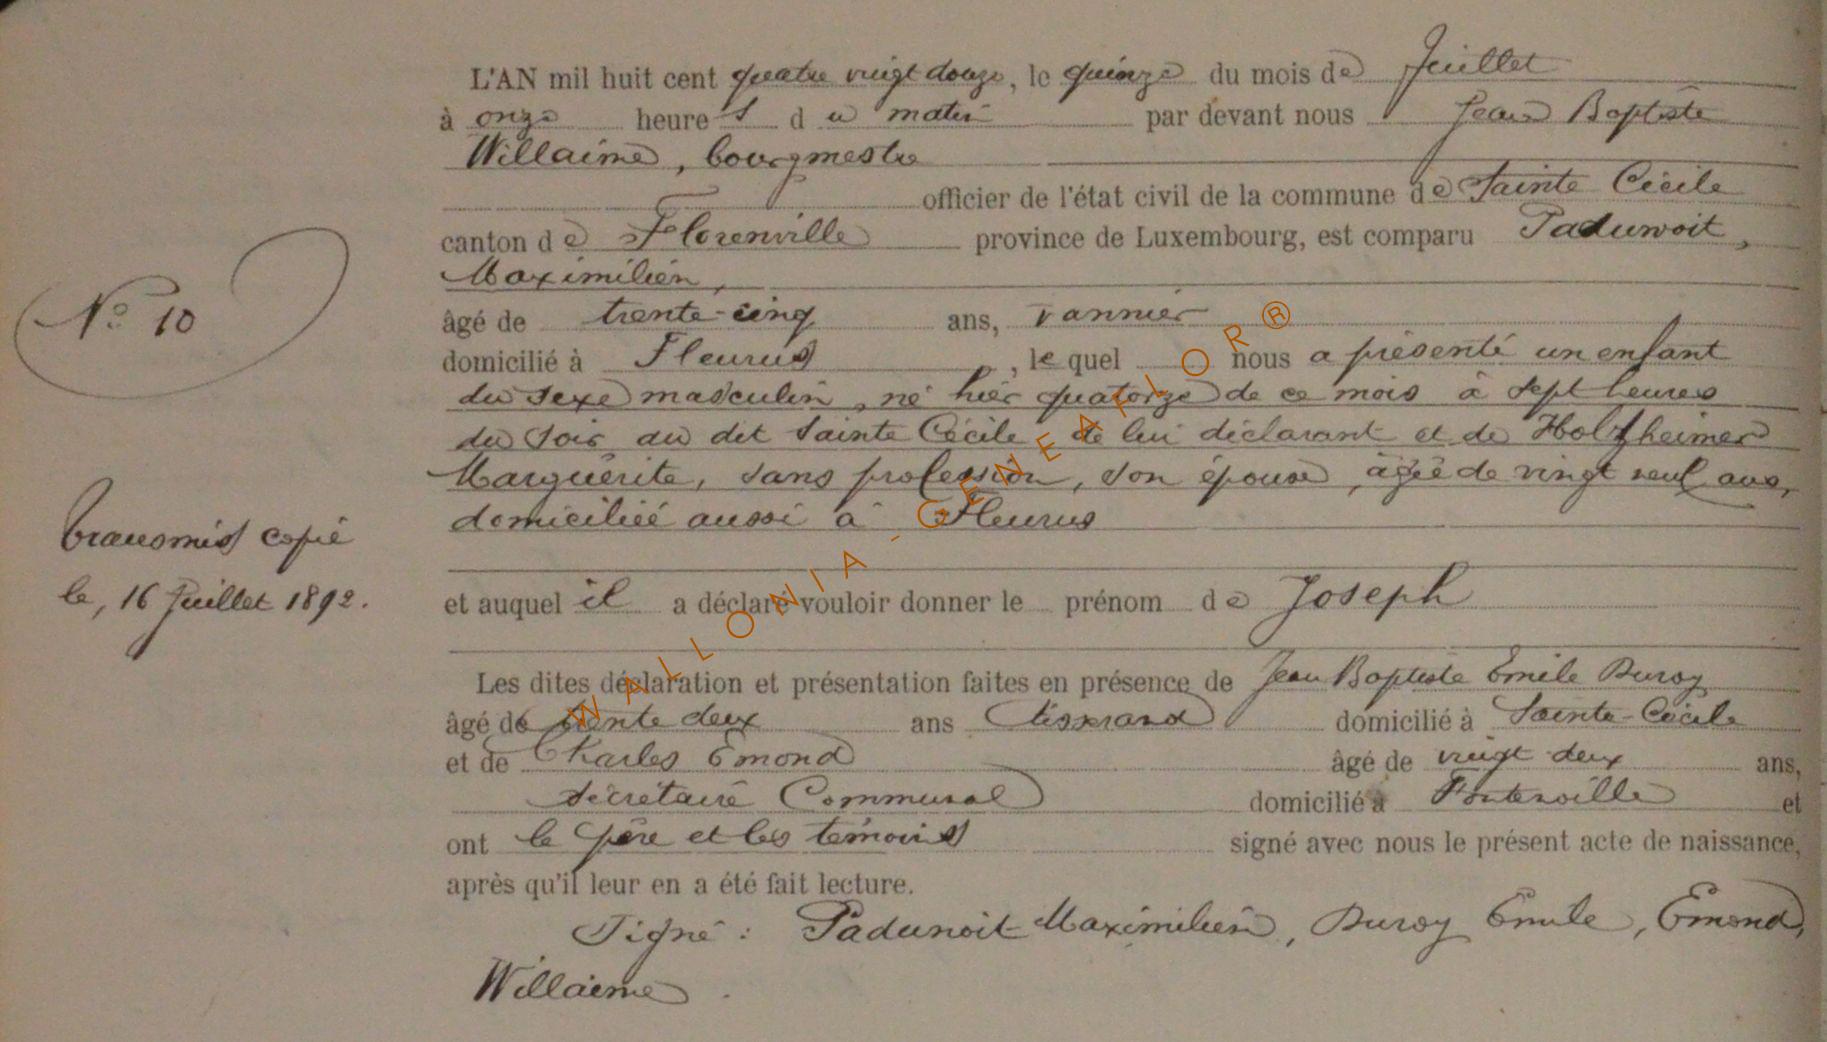 L'AN mil huit cent quatre vingt douze, le quinze du mois de Juillet
à onze heures du matin par devant nous Jean Baptiste
Willaime, bourgmestre
officier de l'état civil de la commune de Sainte Cécile
canton de Florenville province de Luxembourg, est comparu Paduwoit,
Maximilien,
N° 10
âgé de trente-cinq ans, vannier
domicilié à Fleurus, lequel nous a présenté un enfant
du sexe masculin, né hier quatorze de ce mois à sept heures
du soir au dit Sainte Cécile de lui déclarant et de Holzheimer
Marguérite, sans profession, son épouse, âgée de vingt neuf ans,
domiciliée aussi à Fleurus
Transmis copie
le, 16 Juillet 1892.
et auquel il a déclaré vouloir donner le prénom de Joseph
Les dites déclaration et présentation faites en présence de Jean Baptiste Emile Duroy
âgé de trente deux ans tisserand domicilié à Sainte-Cécile
et de Charles Emond âgé de vingt deux ans,
secrétaire Communal domicilié à Fontenoille et
ont le père et les témoins signé avec nous le présent acte de naissance,
après qu'il leur en a été fait lecture.
Signé : Padunoit Maximilien, Duroy Emile, Emond,
Willaime.
WALLONIA-GENEAFLOR®